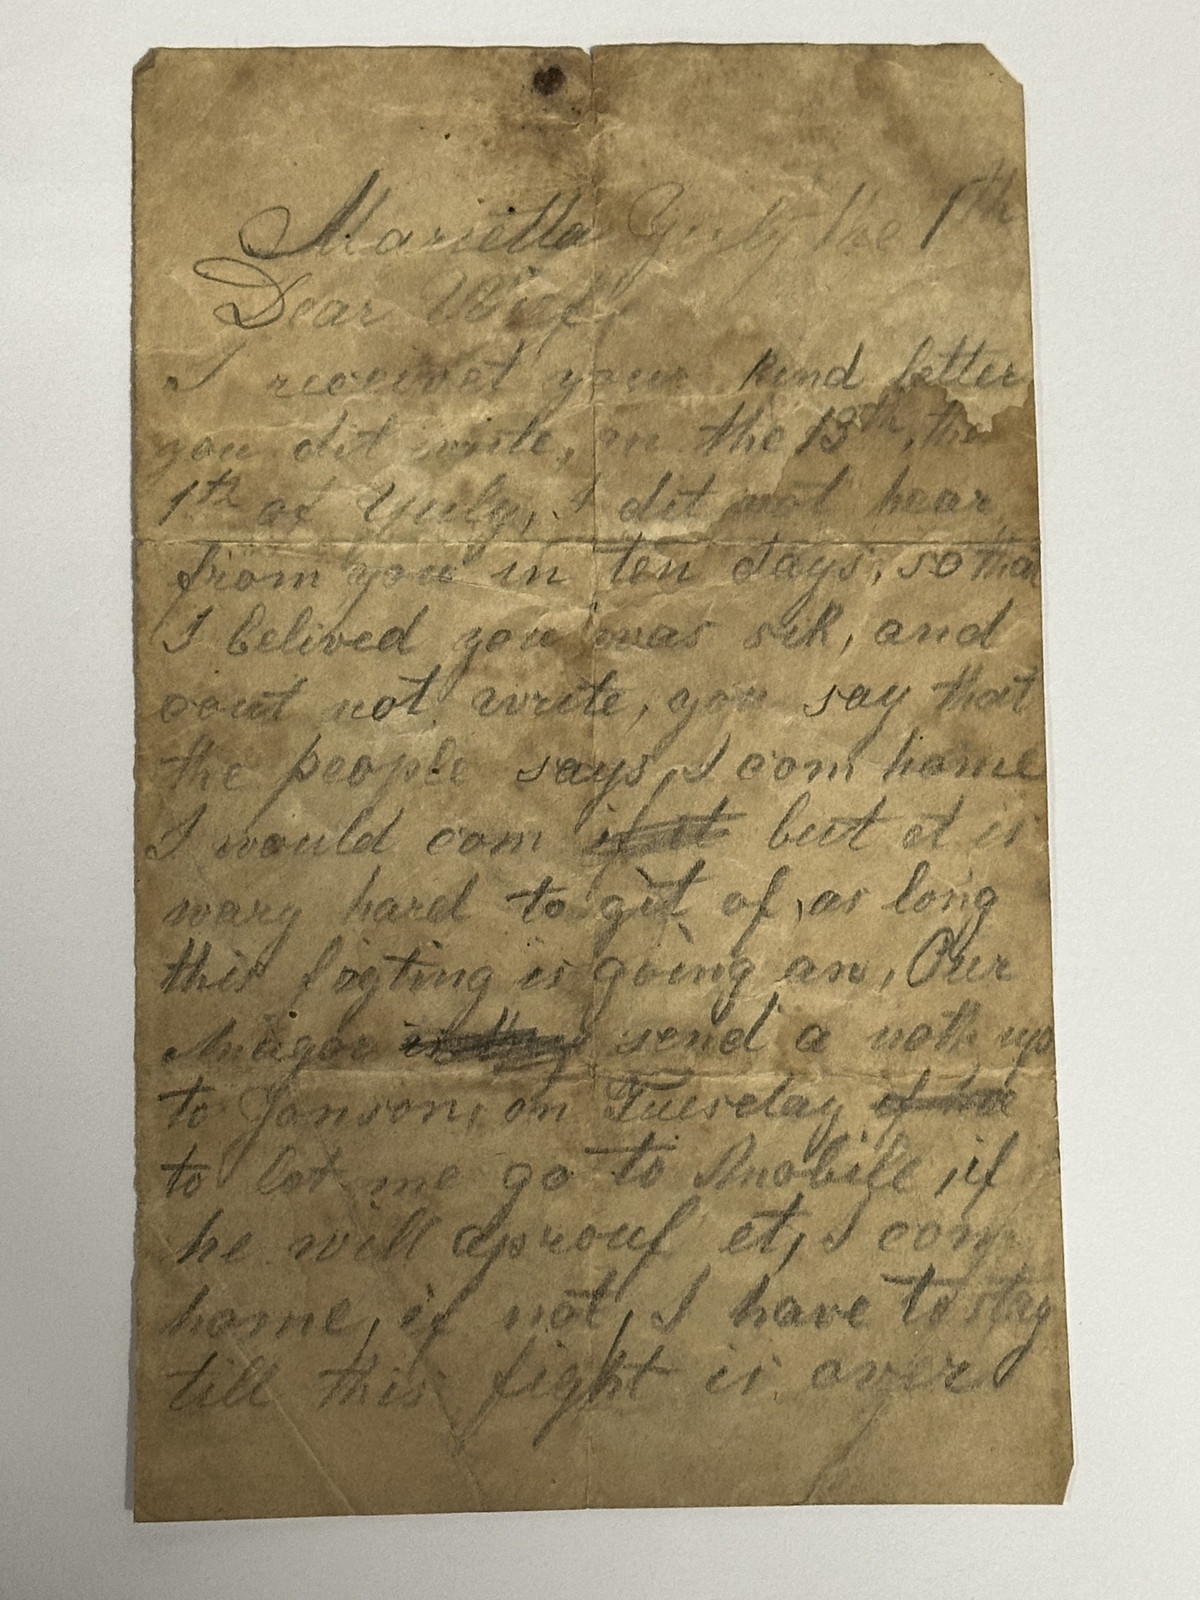 Marietta Yuly the 1th
Dear Wief,
I reoeivet your kind letter
you dit write, on the 13th, the
1th of Yuly, I dit not hear
from you in ten days, so that
I belived you was sik, and
cout not write, you say that
the people says, I com home
I would com if it but et is
wary hard to git of, as long
this figting is going an, Our
Maigor send a noth up
to Jonson, on Tuesday if he
to let me go to Mobile, if
he will aprouf et, I com
home, if not, I have to stay
till this fight is over